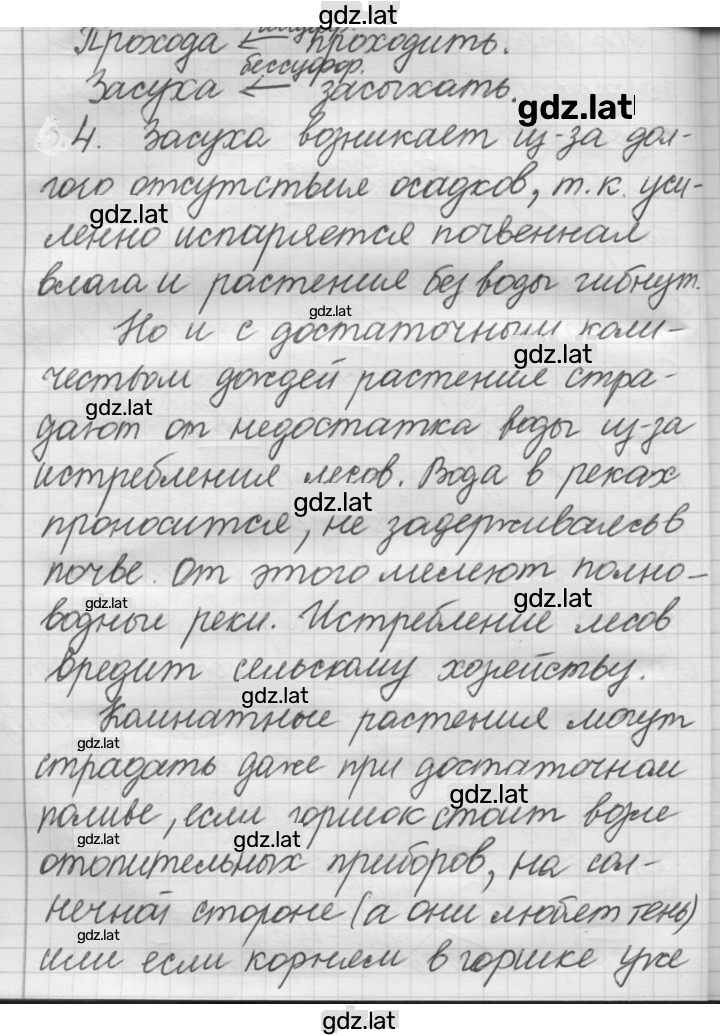 gdz.lat
Прохода ← проходить.
бессуффр.
Засуха ← засыхать.
gdz.lat
4. Засуха возникает из-за дол-
гого отсутствия осадков, т.к. уси-
gdz.lat
ленно испаряется почвенная
влага и растения без воды гибнут.
gdz.lat
Но и с достаточным коли-
gdz.lat
чеством дождей растения стра-
gdz.lat
дают от недостатка воды из-за
истребления лесов. Вода в реках
gdz.lat
проносится, не задерживаясь в
почве. От этого мелеют полно-
gdz.lat
gdz.lat
водные реки. Истребление лесов
вредит сельскому хозяйству.
gdz.lat
Комнатные растения могут
gdz.lat
страдать даже при достаточном
gdz.lat
поливе, если горшок стоит возле
gdz.lat
gdz.lat
отопительных приборов, на сол-
нечной стороне (а они любят тень)
gdz.lat
или если корням в горшке уже
gdz.lat